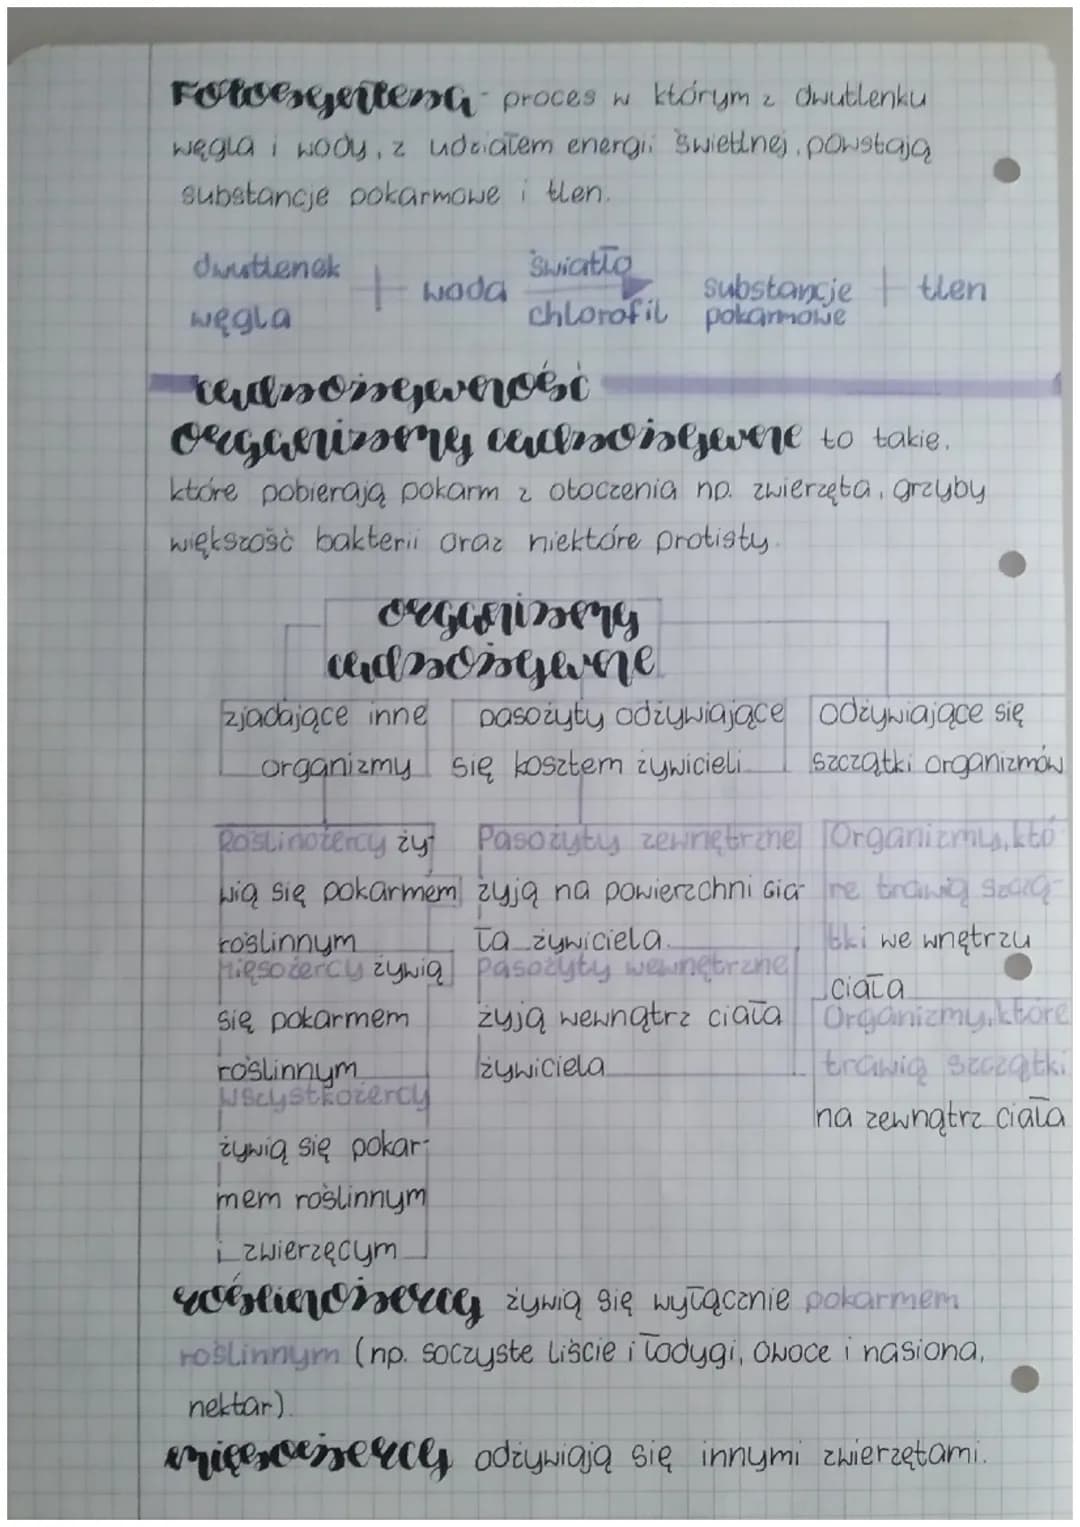 Fotosynteza - proces w którym z dwutlenku
węgla i wody, z udziałem energii świetlnej, powstają
substancje pokarmowe i tlen.
dwutlenek węgla + woda światło chlorofil substancje pokarmowe + tlen
cudzożywność
organizmy cudzożywne to takie,
które pobierają pokarm z otoczenia np. zwierzęta, grzyby
większość bakterii oraz niektóre protisty.
organizmy
cudzożywne
zjadające inne
organizmy
pasożyty odżywiające
się kosztem żywicieli
odżywiające się
szczątki organizmów
Roślinożercy ży-
wią się pokarmem
roślinnym
Mięsożercy żywią
się pokarmem
roślinnym
Wszystkożercy
żywią się pokar-
mem roślinnym
i zwierzęcym
Pasożyty zewnętrzne
żyją na powierzchni cia-
ła żywiciela.
Pasożyty wewnętrzne
żyją wewnątrz ciała
żywiciela
Organizmy, któ
re trawią szczą-
tki we wnętrzu
ciała
Organizmy, które
trawią szczątki
na zewnątrz ciała
roślinożercy żywią się wyłącznie pokarmem
roślinnym (np. soczyste liście i łodygi, owoce i nasiona,
nektar).
mięsożercy odżywiają się innymi zwierzętami.